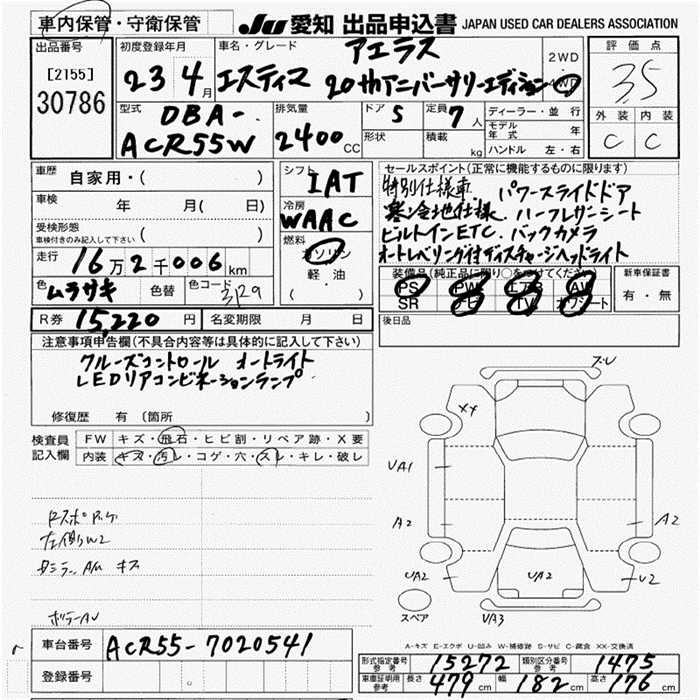 車内保管・守衛保管
JU 愛知 出品申込書 JAPAN USED CAR DEALERS ASSOCIATION
出品番号
[2155]
30786
初度登録年月
23 4月
車名・グレード アエラス
エスティマ 20thアニバーサリーエディション
2WD
4WD
評価点
3.5
外装 内装
C C
型式 DBA-
ACR55W
排気量
2400CC
ドア 5
形状
定員 7人
積載 kg
ディーラー・並行
モデル年式 年
ハンドル 左・右
車歴 自家用・( )
車検 年 月( 日)
受検形態
車検付きのみ記入して下さい ( )
走行 16万2千006km
色 ムラサキ 色替 色コード 3P29
シフト IAT
冷房 WAAC
燃料 ガソリン
軽・油
( )
セールスポイント(正常に機能するものに限ります)
特別仕様車 パワースライドドア
寒冷地仕様、ハーフレザーシート
ビルトインETC、バックカメラ
オートレベリング付ディスチャージヘッドライト
装備品(純正品に限り○をつけてください)
PS PW エアB AW
SR ナビ TV カワシート
新車保証書
有・無
R券 15,220円 名変期限 月 日
後日品
注意事項申告欄(不具合内容等は具体的に記入して下さい)
クルーズコントロール オートライト
LEDリアコンビネーションランプ
修復歴 有(箇所
検査員
記入欄
FW キズ・飛石・ヒビ割・リペア跡・X要
内装 キズ・汚レ・コゲ・穴・スレ・キレ・破レ
左側W2
XX
UA1
A2
A2
UA2
UA2
U2
UA3
スペア
車台番号 ACR55-7020541
登録番号
A-キズ E-エクボ U-凹み W-補修跡 S-サビ C-腐食 XX-交換済
形式指定番号 参考 15272 類別区分番号 参考 1475
車庫証明用 参考 長さ 479cm 幅 182cm 高さ 176cm